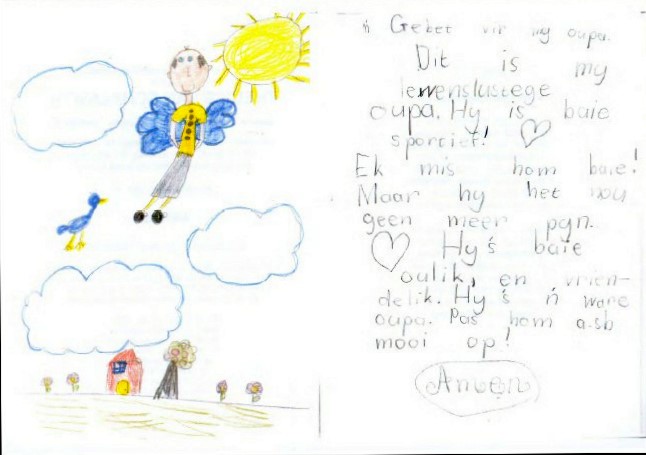 'n Gebet vir my oupa.
Dit is my
lewenslustege
oupa. Hy is baie
sportief!
Ek mis hom baie!
Maar hy het nou
geen meer pyn.
Hy's baie
oulik, en vrien-
delik. Hy's 'n ware
oupa. Pas hom a.sb
mooi op!
Amen